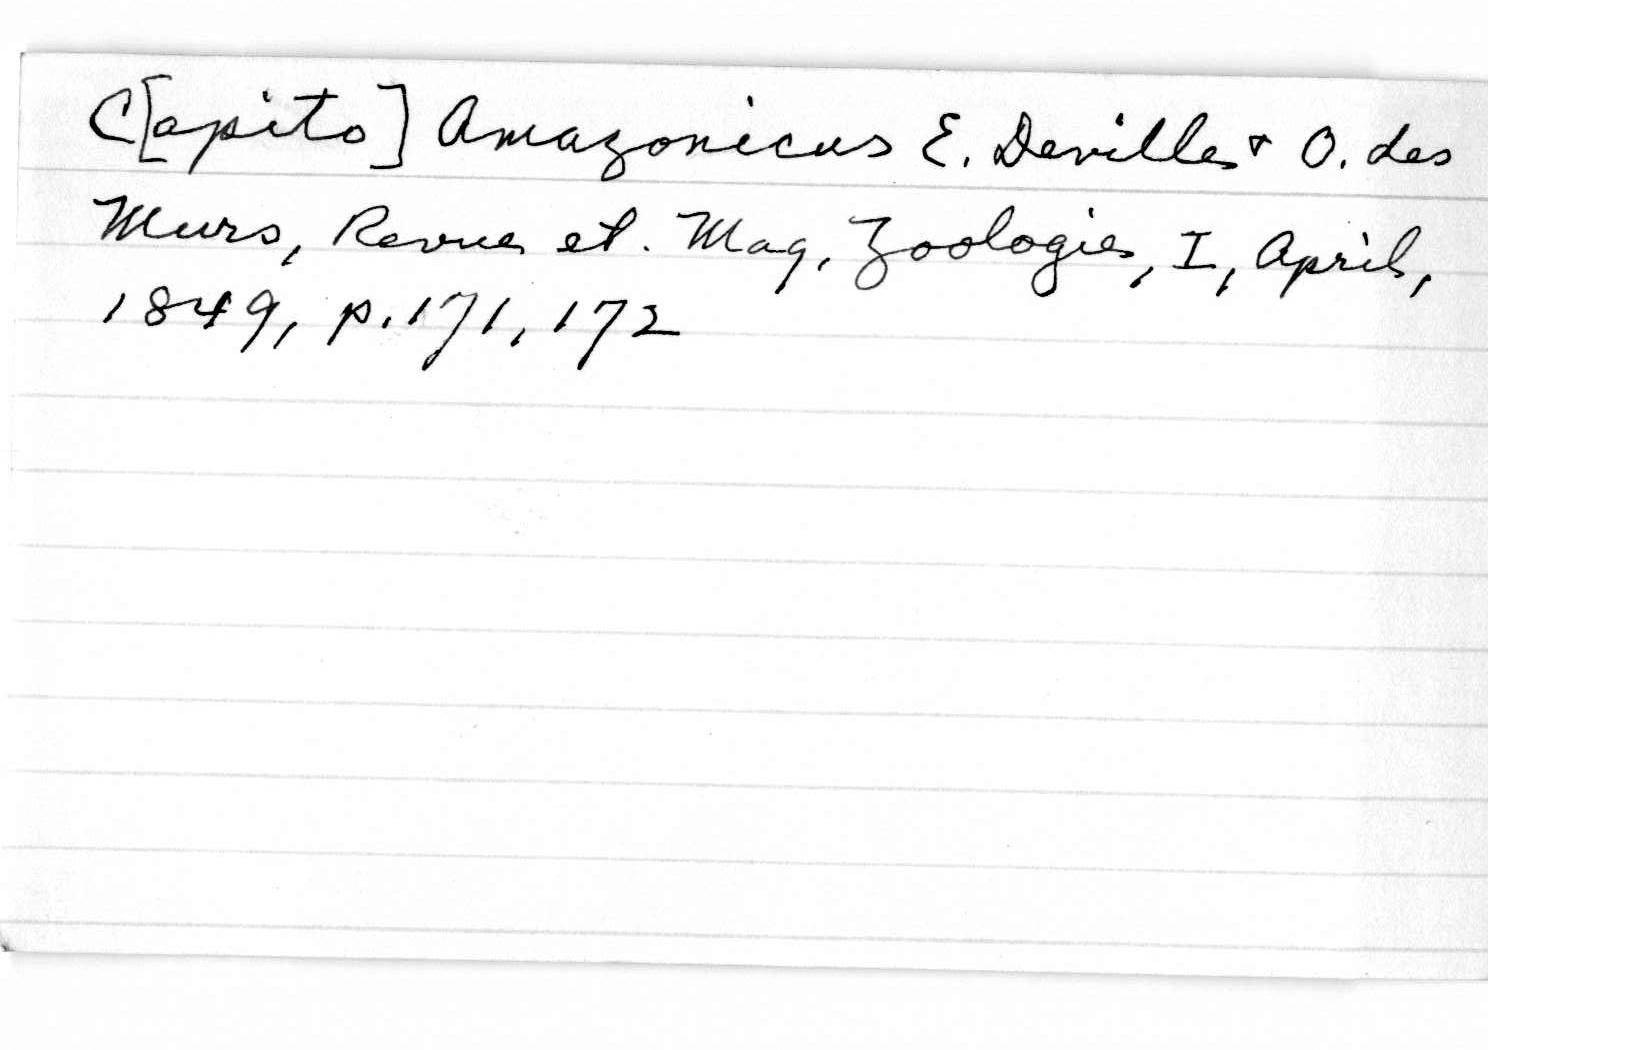 C[apito] Amazonicus E. Deville & O. des
Murs, Revue et. Mag, Zoologie, I, April,
1849, p. 171, 172